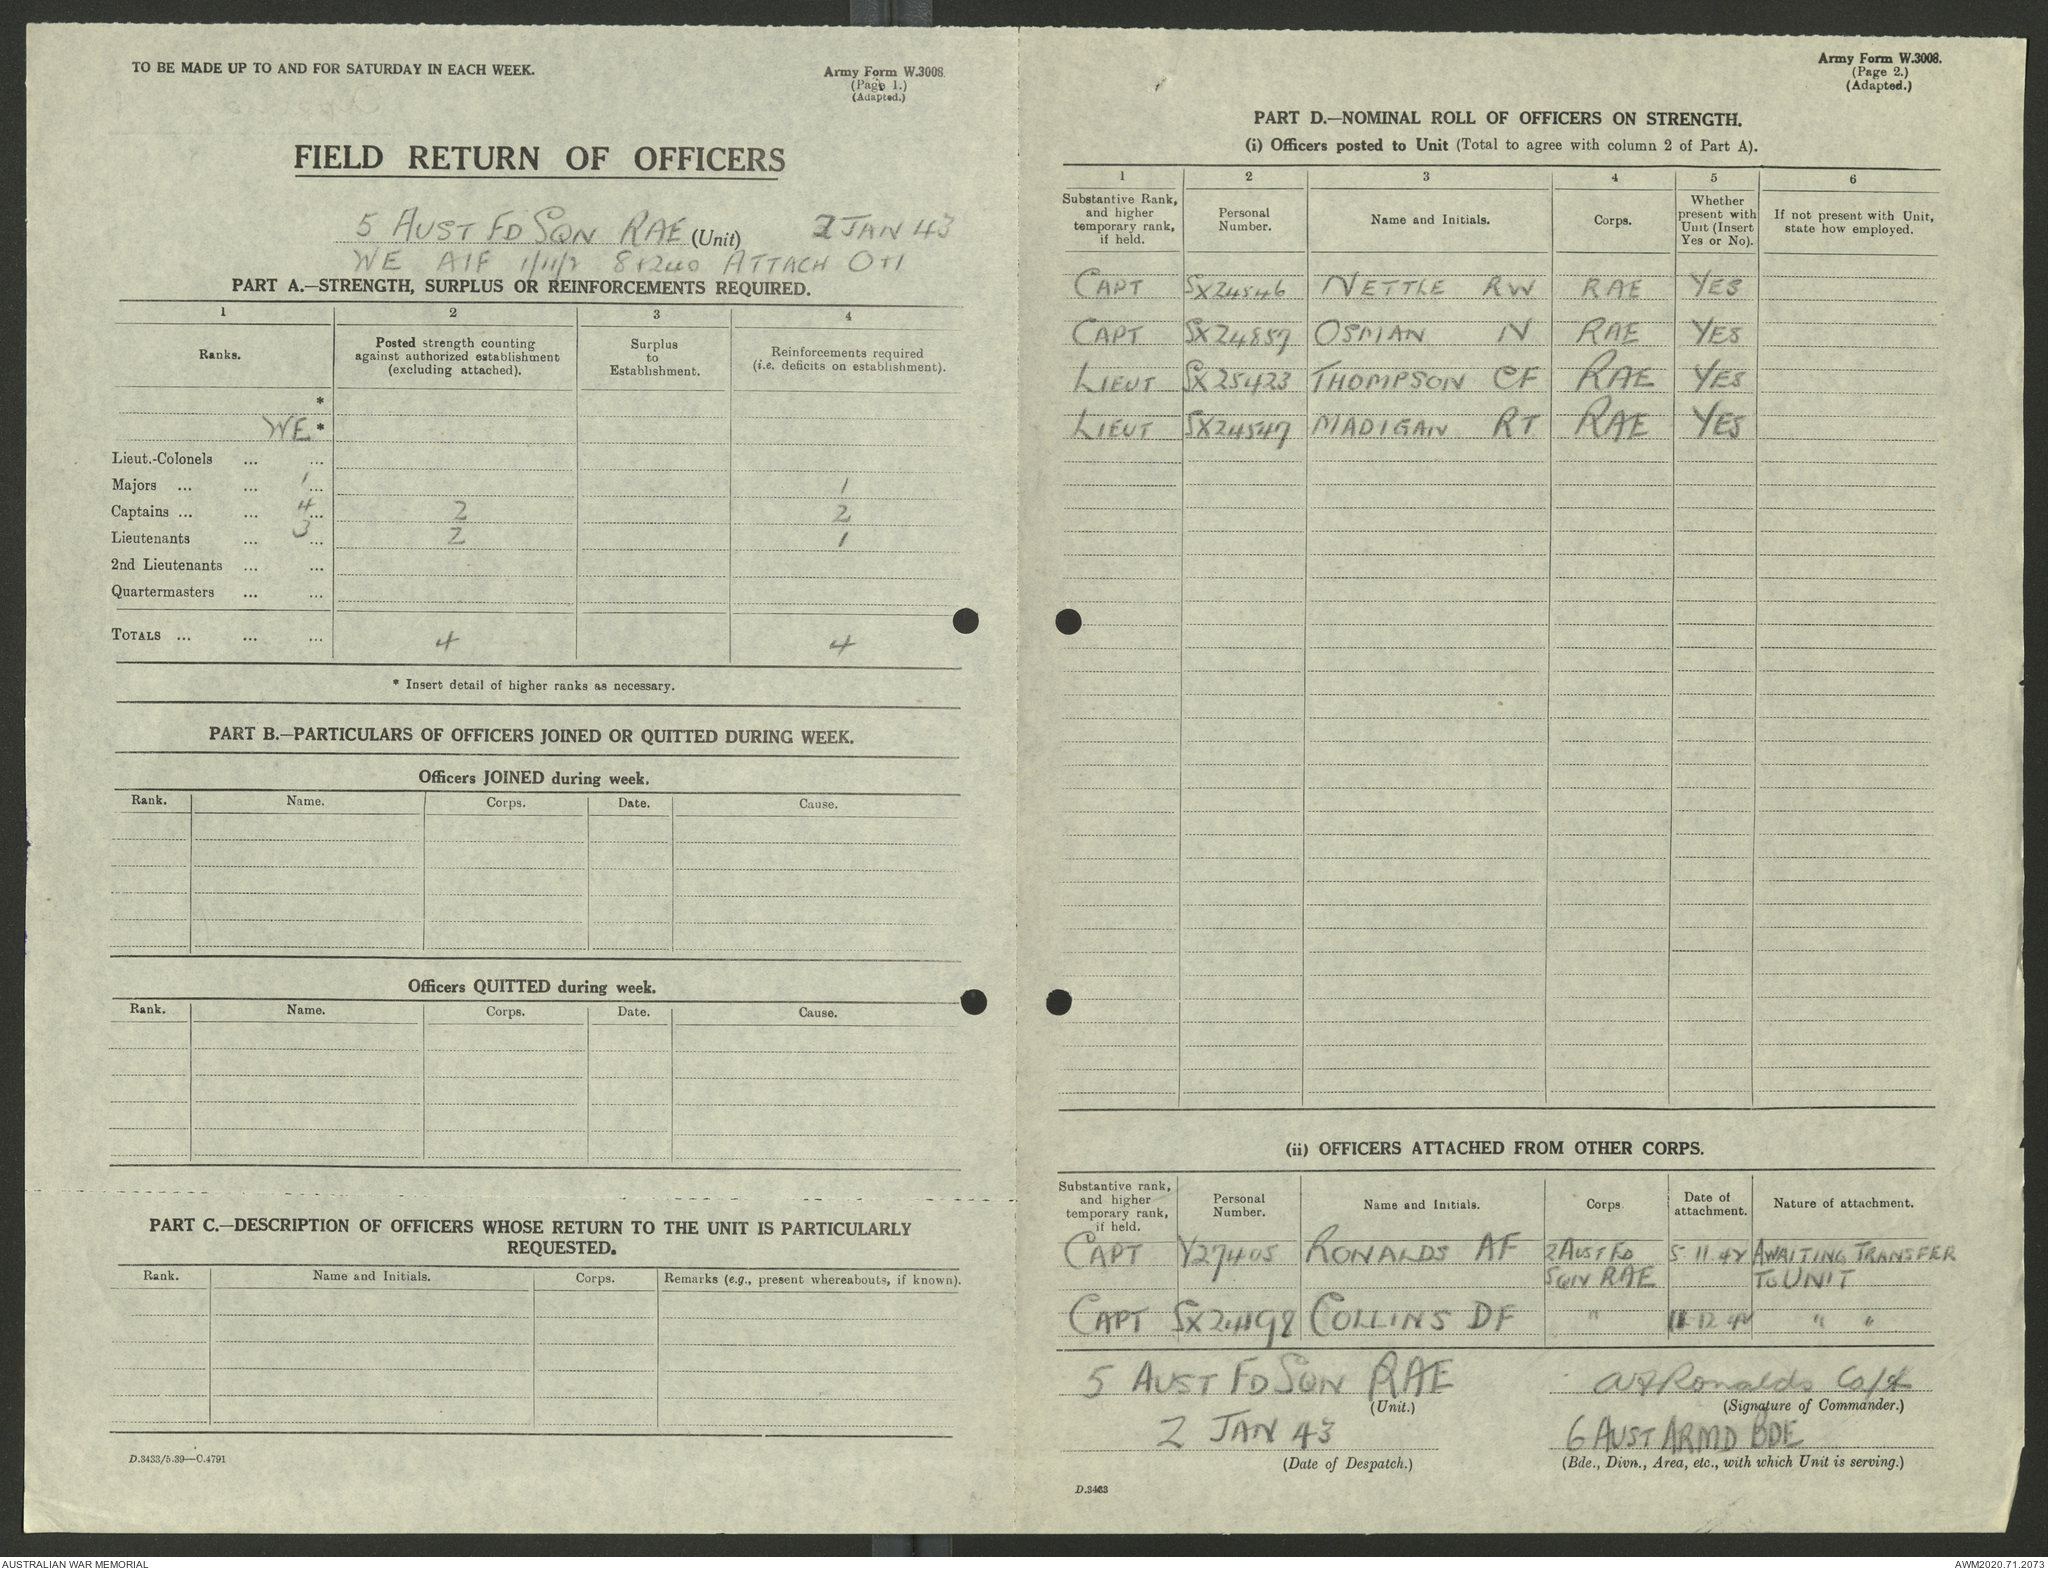 TO BE MADE UP TO AND FOR SATURDAY IN EACH WEEK.
Army Form W.3008.
(Page 1.)
(Adapted.)
FIELD RETURN OF OFFICERS
5 AUST FD SQN RAE (Unit) 2 JAN 43
WE AIF 1/11/2 8+240 ATTACH O+1
PART A.—STRENGTH, SURPLUS OR REINFORCEMENTS REQUIRED.
1 2 3 4
Ranks.
Posted strength counting
against authorized establishment
(excluding attached).
Surplus
to
Establishment.
Reinforcements required
(i.e. deficits on establishment).
*
WE *
Lieut.-Colonels ... ...
Majors ... ... 1 ... 1
Captains ... ... 4 ... 2 2
Lieutenants ... 3 ... 2 1
2nd Lieutenants ... ...
Quartermasters ... ...
TOTALS ... ... ... 4 4
* Insert detail of higher ranks as necessary.
PART B.—PARTICULARS OF OFFICERS JOINED OR QUITTED DURING WEEK.
Officers JOINED during week.
Rank. Name. Corps. Date. Cause.
Officers QUITTED during week.
Rank. Name. Corps. Date. Cause.
PART C.—DESCRIPTION OF OFFICERS WHOSE RETURN TO THE UNIT IS PARTICULARLY
REQUESTED.
Rank. Name and Initials. Corps. Remarks (e.g., present whereabouts, if known).
D.3433/5.39—C.4791
Army Form W.3008.
(Page 2.)
(Adapted.)
PART D.—NOMINAL ROLL OF OFFICERS ON STRENGTH.
(i) Officers posted to Unit (Total to agree with column 2 of Part A).
1 2 3 4 5 6
Substantive Rank,
and higher
temporary rank,
if held.
Personal
Number.
Name and Initials.
Corps.
Whether
present with
Unit (Insert
Yes or No).
If not present with Unit,
state how employed.
CAPT SX24546 NETTLE RW RAE YES
CAPT SX24857 OSMAN N RAE YES
LIEUT SX25423 THOMPSON CF RAE YES
LIEUT SX24547 MADIGAN RT RAE YES
(ii) OFFICERS ATTACHED FROM OTHER CORPS.
Substantive rank,
and higher
temporary rank,
if held.
Personal
Number.
Name and Initials.
Corps.
Date of
attachment.
Nature of attachment.
CAPT V27405 RONALDS AF 2 AUST FD 5.11.42 AWAITING TRANSFER
SQN RAE TO UNIT
CAPT SX24198 COLLINS DF " 11.12.42 " "
5 AUST FD SQN RAE
(Unit.)
AF Ronalds Capt
(Signature of Commander.)
2 JAN 43
(Date of Despatch.)
6 AUST ARMD BDE
(Bde., Divn., Area, etc., with which Unit is serving.)
D.3433
AUSTRALIAN WAR MEMORIAL
AWM2020.71.2073